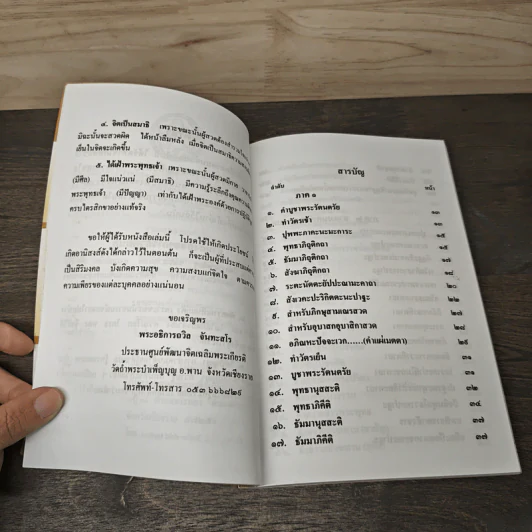 ๔. จิตเป็นสมาธิ เพราะขณะนั้นผู้สวดต้องสำรวมใจ
มิฉะนั้นจะสวดผิด ได้หน้าลืมหลัง เมื่อจิตเป็นสมาธิความ
เย็นในจิตจะเกิดขึ้น
๕. ได้เฝ้าพระพุทธเจ้า เพราะขณะนั้นผู้สวดมีกาย วาจา
(มีศีล) มีใจแน่วแน่ (มีสมาธิ) มีความรู้ระลึกถึงคุณความ
พระพุทธเจ้า (มีปัญญา) เท่ากับได้เฝ้าพระองค์ด้วยการปฏิบัติ
ครบไตรสิกขาอย่างแท้จริง
ขอให้ผู้ได้รับหนังสือเล่มนี้ โปรดใช้ให้เกิดประโยชน์
เกิดอานิสงส์ดังได้กล่าวไว้ในตอนต้น ก็จะเป็นผู้ที่ประสบแต่
เป็นสิริมงคล บังเกิดความสุข ความสงบแก่จิตใจ ตาม
ความเพียรของแต่ละบุคคลอย่างแน่นอน
ขอเจริญพร
พระอธิการถวิล จันทะสโร
ประธานศูนย์พัฒนาจิตเฉลิมพระเกียรติ
วัดถ้ำพระบำเพ็ญบุญ อ.พาน จังหวัดเชียงราย
โทรศัพท์-โทรสาร ๐๕๓ ๖๖๖๘๒๕
สารบัญ
ลำดับ หน้า
ภาค ๑
๑. คำบูชาพระรัตนตรัย ๑๓
๒. ทำวัตรเช้า ๑๓
๓. ปุพพะภาคะนะมะการะ ๑๕
๔. พุทธาภิถุติกถา ๑๕
๕. ธัมมาภิถุติกถา ๑๗
๖. สังฆาภิถุติกถา ๑๘
๗. ระตะนัตตะยัปปะณามะคาถา ๒๐
๘. สังเวคะปะริกิตตะนะปาฐะ ๒๒
๙. สำหรับภิกษุสามเณรสวด ๒๗
๑๐. สำหรับอุบาสกอุบาสิกาสวด ๒๘
๑๑. อภิณหะปัจจะเวก......(คำแผ่เมตตา) ๒๙
๑๒. ทำวัตรเย็น ๓๑
๑๓. บูชาพระรัตนตรัย ๓๑
๑๔. พุทธานุสสะติ ๓๒
๑๕. พุทธาภิคีติ ๓๔
๑๖. ธัมมานุสสะติ ๓๗
๑๗. ธัมมาภิคีติ ๓๗